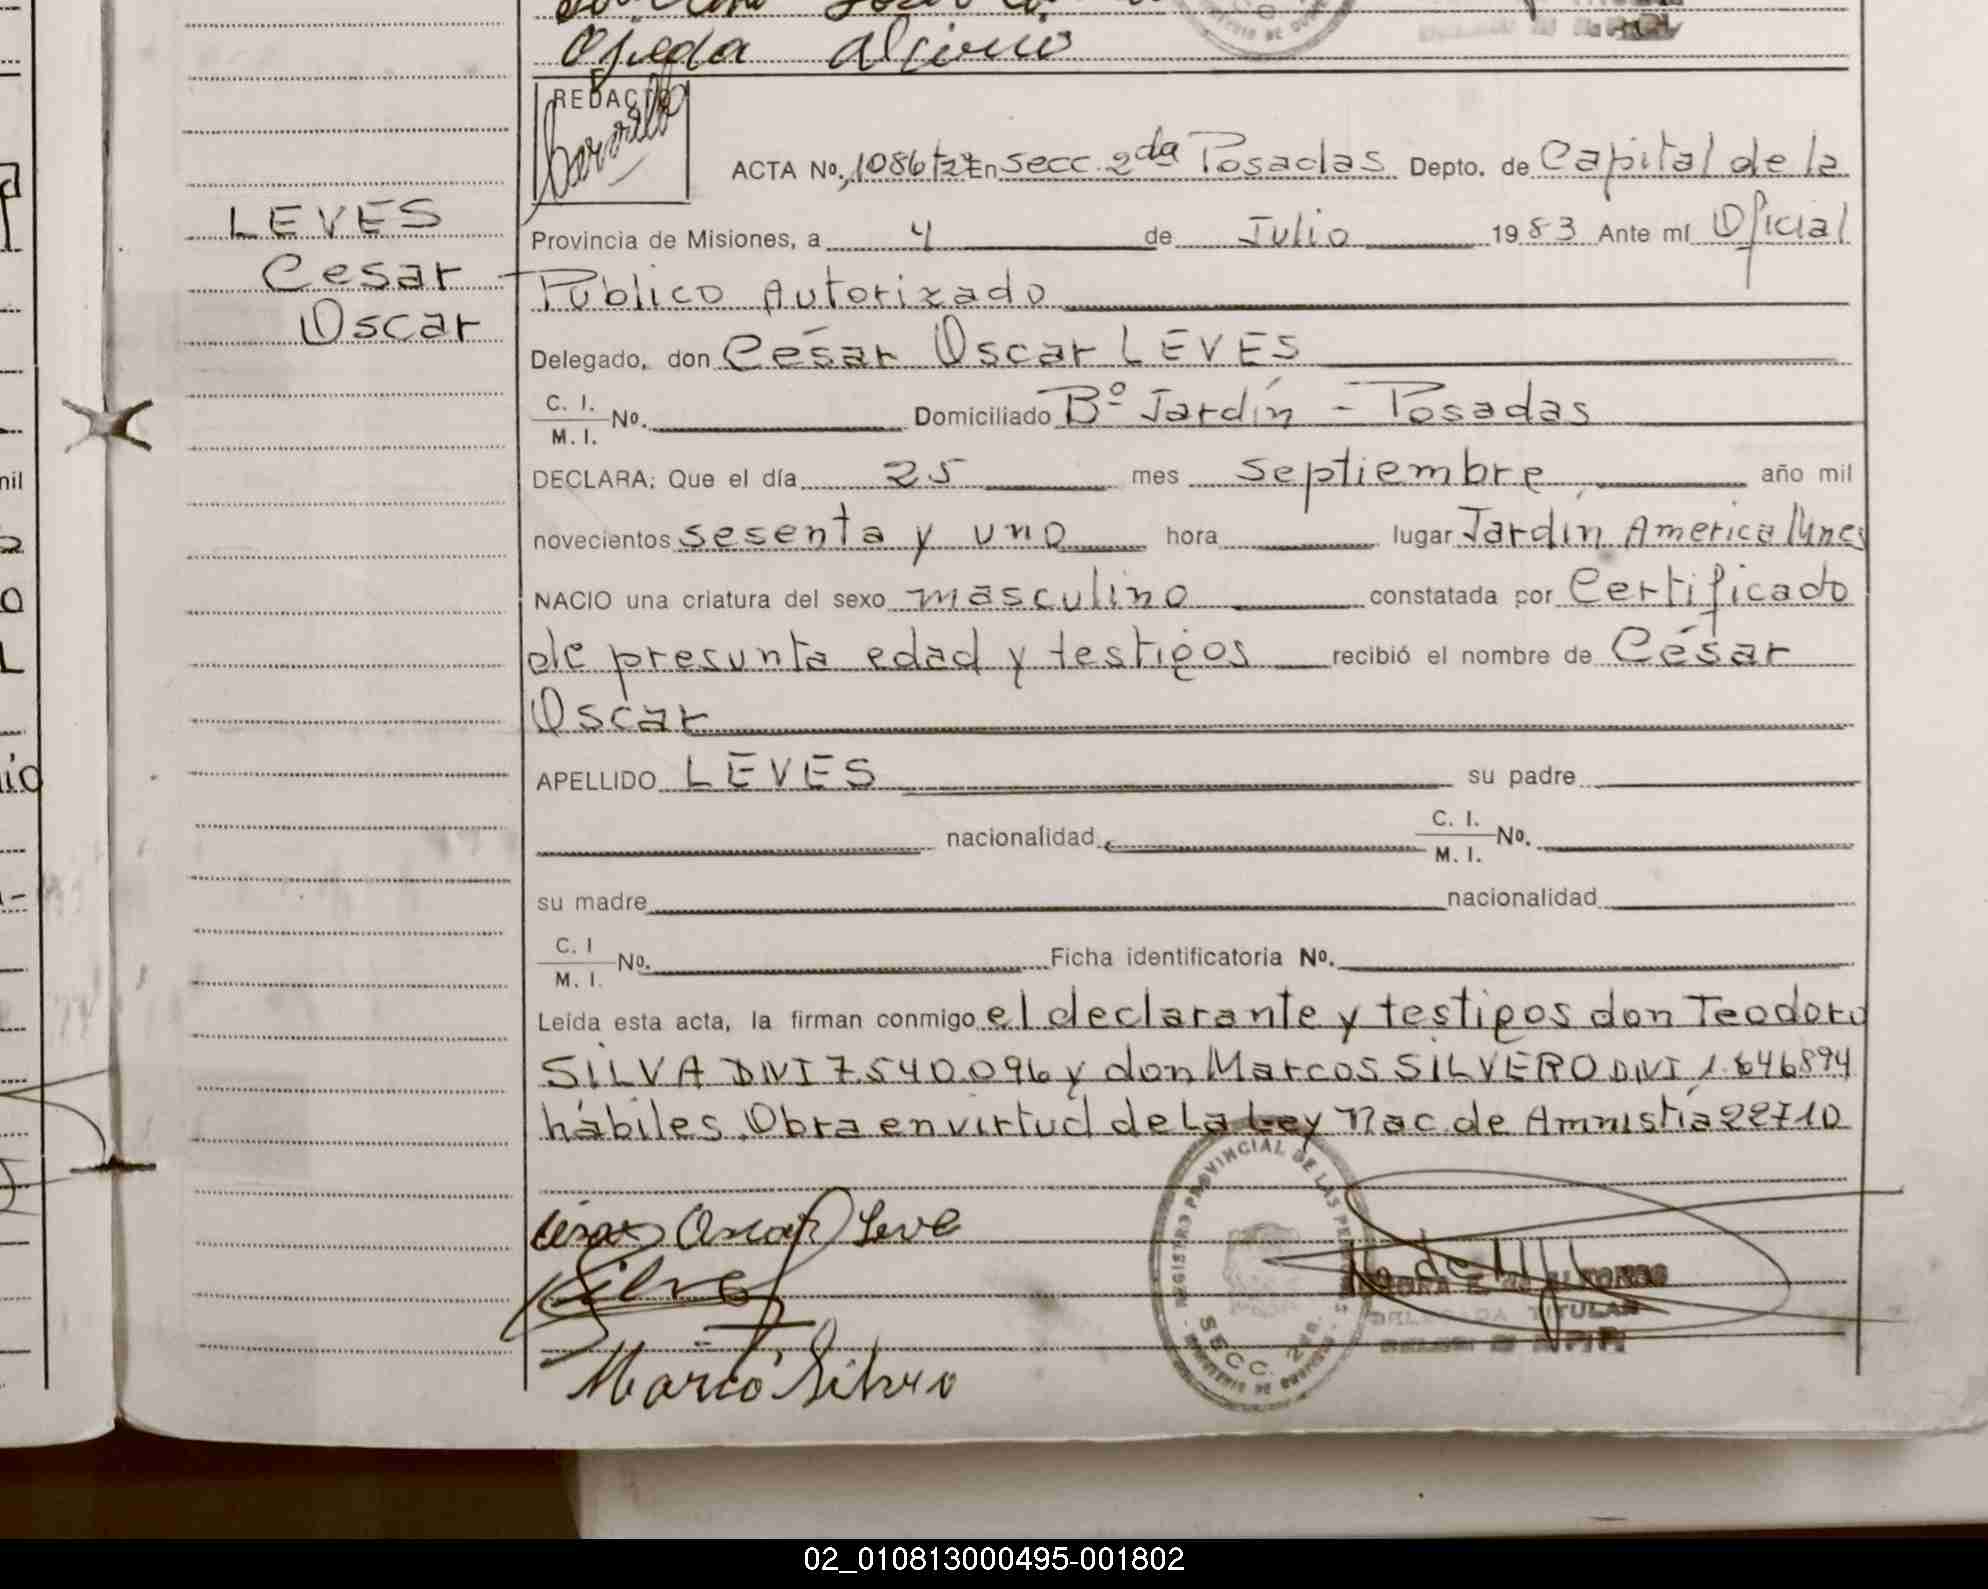 Ojeda
REDACTO
ACTA No. 1086 En Secc. 2da Posadas Depto. de Capital de la
LEVES
Provincia de Misiones, a 4 de Julio 1983 Ante mí Oficial
Cesar
Público Autorizado
Oscar
Delegado, don César Oscar LEVES
C. I.
M. I. No. Domiciliado Bº Jardín - Posadas
DECLARA: Que el día 25 mes septiembre año mil
novecientos sesenta y uno hora lugar Jardín America
NACIO una criatura del sexo masculino constatada por Certificado
de presunta edad y testigos recibió el nombre de César
Oscar
APELLIDO LEVES su padre
nacionalidad C. I.
M. I. No.
su madre nacionalidad
C. I
M. I. No. Ficha identificatoria No.
Leída esta acta, la firman conmigo el declarante y testigos don Teodoro
SILVA DNI 7540.096 y don Marcos SILVERO DNI
hábiles. Obra en virtud de La Ley Nac. de Amnistía 22710
REGISTRO PROVINCIAL DE LAS PERSONAS
SECC. 2da.
Oscar Leve
DELEGADA TITULAR
02_010813000495-001802